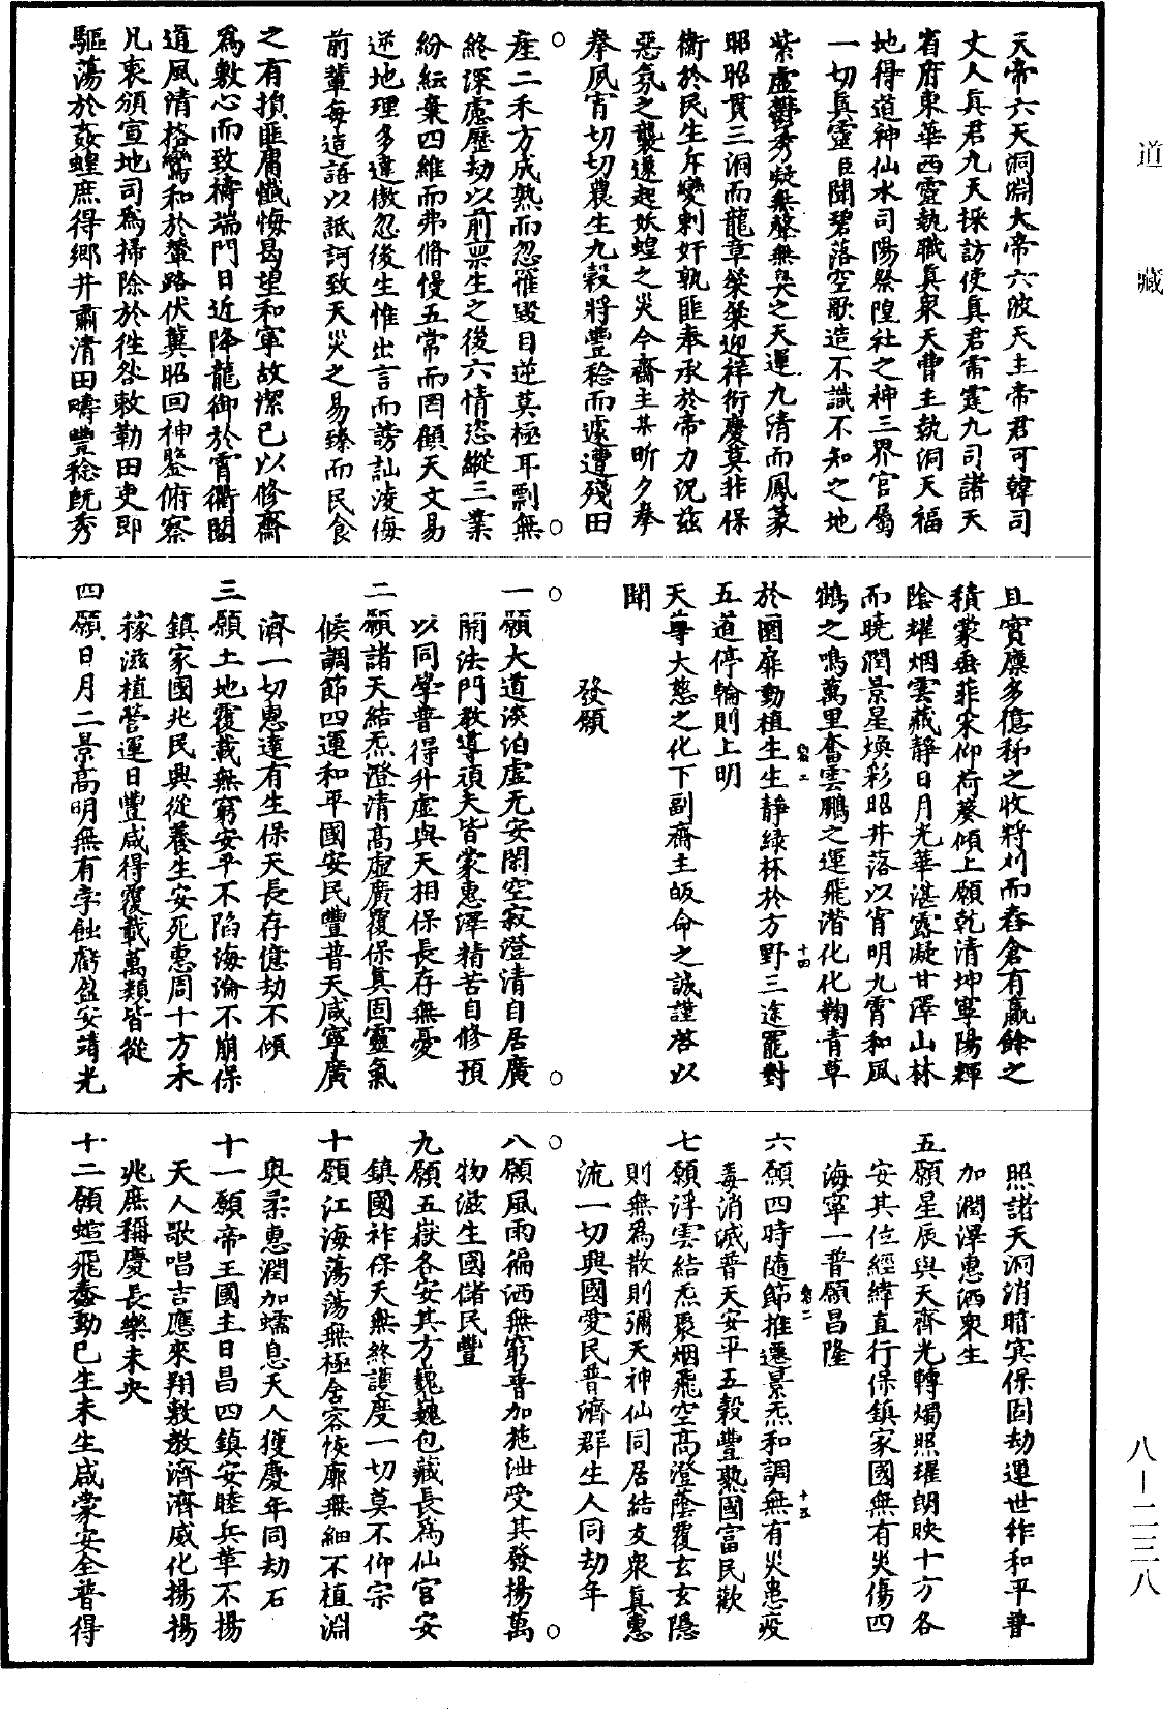 道藏
天帝六天洞淵大帝六波天主帝君可韓司
丈人真君九天採訪使真君雷霆九司諸天
省府東華西靈執職真衆天曹主執洞天福
地得道神仙水司陽祭隍社之神三界官屬
一切真靈臣聞碧落空歌造不識不知之地
紫虛鬱秀凝無聲無臭之天運九清而鳳篆
昭昭貫三洞而龍章粲粲迎祥衍慶莫非保
衛於民生年變剌奸孰匪奉承於帝力況兹
惡氛之襲遽起妖蝗之災今齋主某昕夕奉
奉夙宵切切農生九穀將豐稔而遽遭殘田
產二禾方成熟而忽罹毀目逆莫極耳剽無
終深慮歷劫以前禀生之後六情恣縱三業
紛紜棄四維而弗脩慢五常而罔顧天文易
逆地理多違傲忽後生惟出言而謗訕淩侮
前輩每造語以詆訶致天災之易臻而民食
之有損匪庸懺悔曷望和寧故潔已以修齋
爲敷心而致禱端門日近降龍御於霄衢閶
道風清格鸞和於輦路伏冀昭回神鑒俯察
凡衷頒宣地司爲掃除於徃咎敕勒田吏即
驅蕩於姦蝗庶得鄉井肅清田疇豐稔旣秀
且實廪多億秭之收將刈而舂倉有贏餘之
積蒙垂菲宋仰荷葵傾上願乾清坤寧陽輝
陰耀烟雲藏静日月光華湛露凝甘澤山林
而曉潤景星煥彩昭井落以宵明九霄和風
鶴之鳴萬里奮雲鵬之運飛潛化化鞠青草
於圜扉動植生生静綠林於方野三途罷對
五道停輪則上明
天尊大慈之化下副齋主皈命之誠謹啓以
聞
發願
一願大道淡泊虛无安閑空寂澄清自居廣
開法門教導頑夫皆蒙惠澤精苦自修預
以同學普得升虛與天相保長存無憂
二願諸天結炁澄清高虛廣覆保真固靈氣
候調節四運和平國安民豐普天咸寧廣
濟一切惠逮有生保天長存億劫不傾
三願土地覆載無窮安平不陷海淪不崩保
鎮家國兆民興從養生安死惠周十方禾
稼滋植營運日豐咸得覆載萬類皆從
四願日月二景高明無有孛蝕虧盈安靖光
照諸天洞消暗冥保固劫運世祚和平普
加潤澤惠洒衆生
五願星辰與天齊光轉燭照耀朗映十方各
安其位經緯直行保鎮家國無有災傷四
海寧一普願昌隆
六願四時隨節推遷景炁和調無有災患疫
毒消滅普天安平五穀豐熟國富民歡
七願浮雲結炁聚烟飛空高澄蔭覆玄玄隱
則無爲散則彌天神仙同居結友衆真惠
流一切興國愛民普濟群生人同劫年
八願風雨徧洒無窮普加施泄受其發揚萬
物滋生國儲民豐
九願五嶽各安其方巍巍包藏長爲仙官安
鎮國祚保天無終護度一切莫不仰宗
十願江海蕩蕩無極舍容恢廓無細不植淵
奥柔惠潤加蠕息天人獲慶年同劫石
十一願帝王國主日昌四鎮安睦兵革不揚
天人歌唱吉應來翔敷教濟濟威化揚揚
兆庶稱慶長樂未央
十二願蛸飛蠢動已生未生咸蒙安全普得
八—二三八